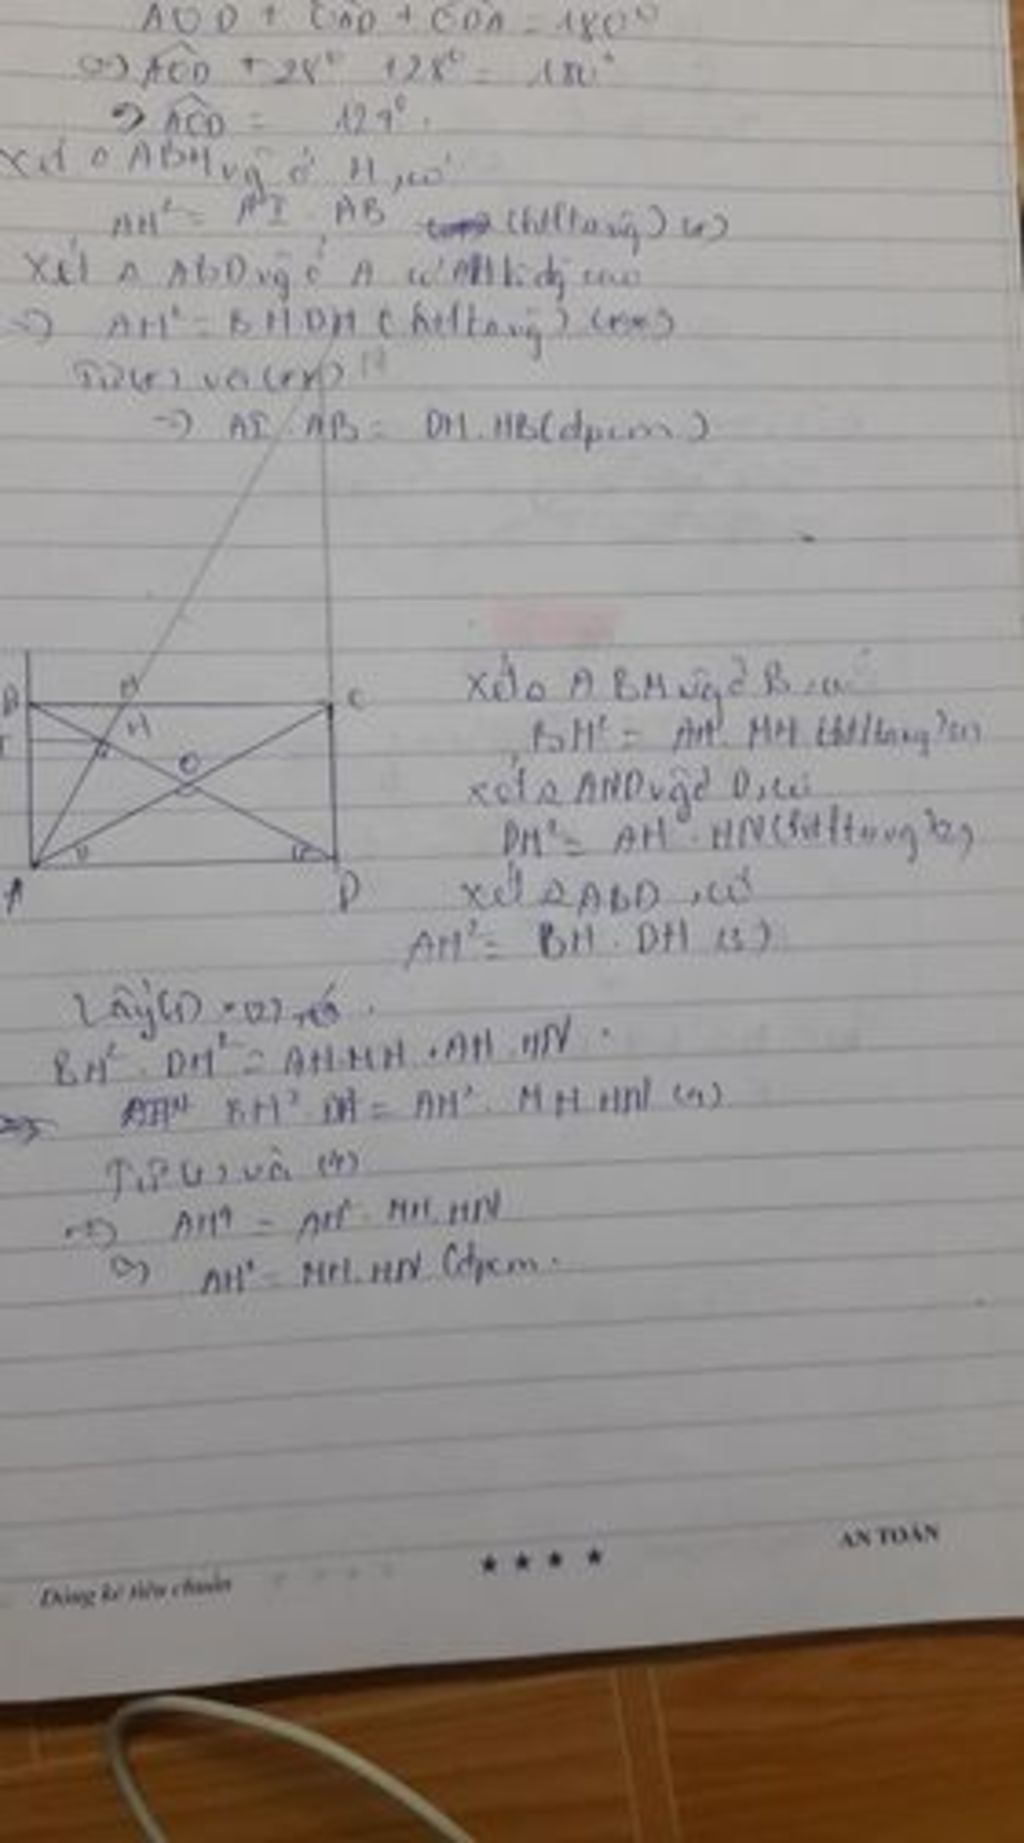 AOD + CAD + CDA = 180°
ACD + 28° 128° = 180°
=> ACD = 124°.
Xét Δ ABH vg ở H, có
AH² = AI . AB (htltamg) (*)
Xét Δ ABD vg ở A có AH là đg cao
=> AH² = BH DH (htltamg) (**)
Từ (*) và (**)
=> AI . AB = DH . HB (đpcm)
B
C
H
O
I
A
D
Xét Δ ABM vg ở B, có
BH² = AH . MH (htltamg) (1)
Xét Δ AND vg ở D, có
DH² = AH . HN (htltamg) (2)
Xét Δ ABD, có
AH² = BH . DH (3)
Lấy (1) . (2)
BH² . DH² = AH.MH . AH . HN
BH² DH² = AH² . MH HN (4)
Từ (3) và (4)
=> AH⁴ = AH² . MH . HN
=> AH² = MH . HN (đpcm.
AN TOÀN
★ ★ ★ ★
Dòng kẻ tiêu chuẩn